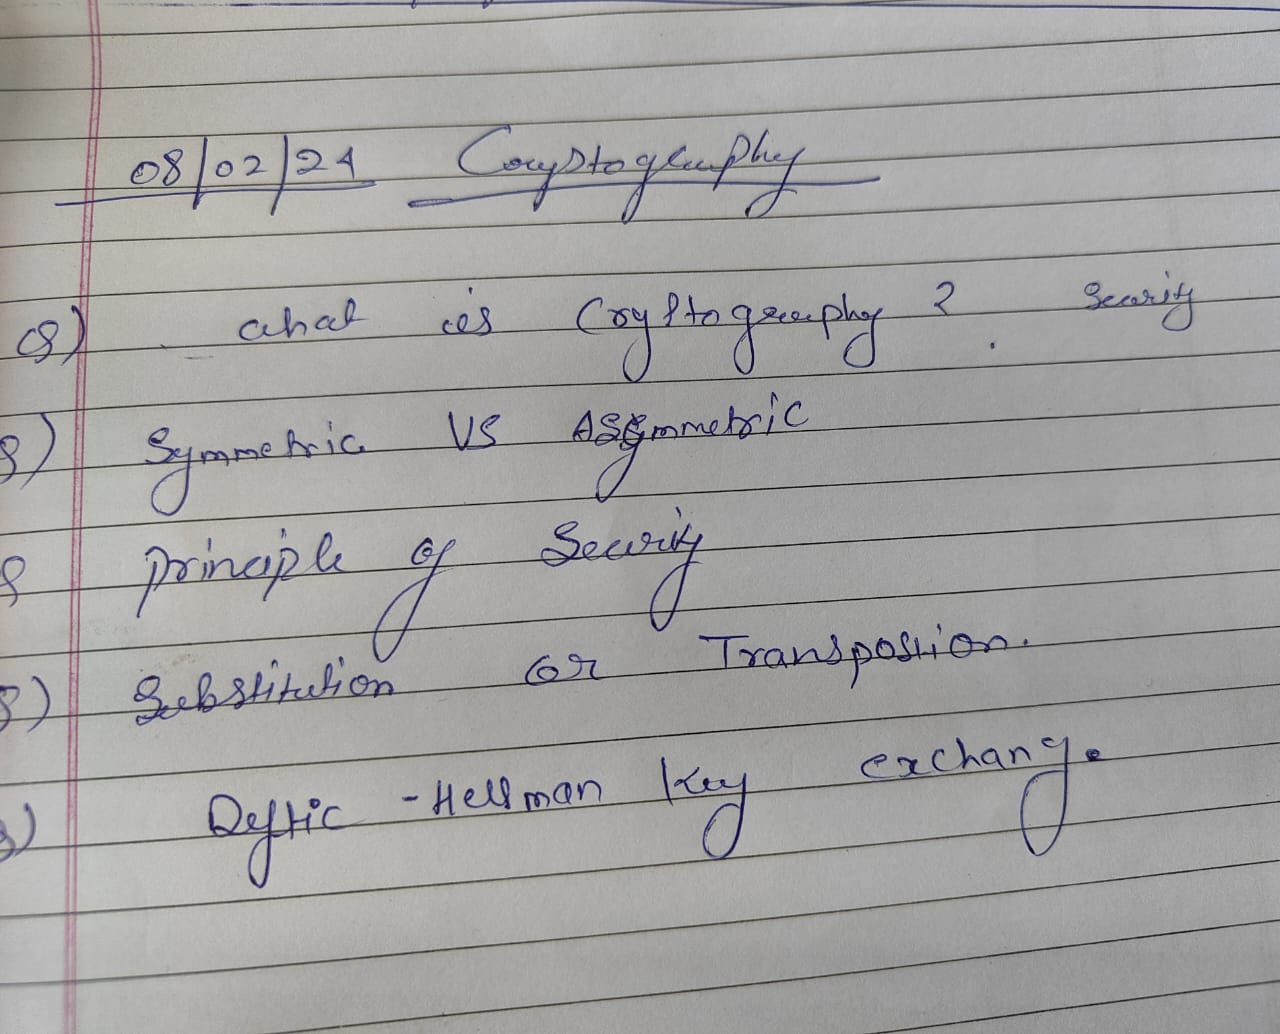 08/02/24 Cryptography
Q) what is Cryptography ? Security
Q) Symmetric VS Assymmetric
Q principle of Security
Q) Substitution or Transpostion.
Q) Deffic - Hellman Key exchange